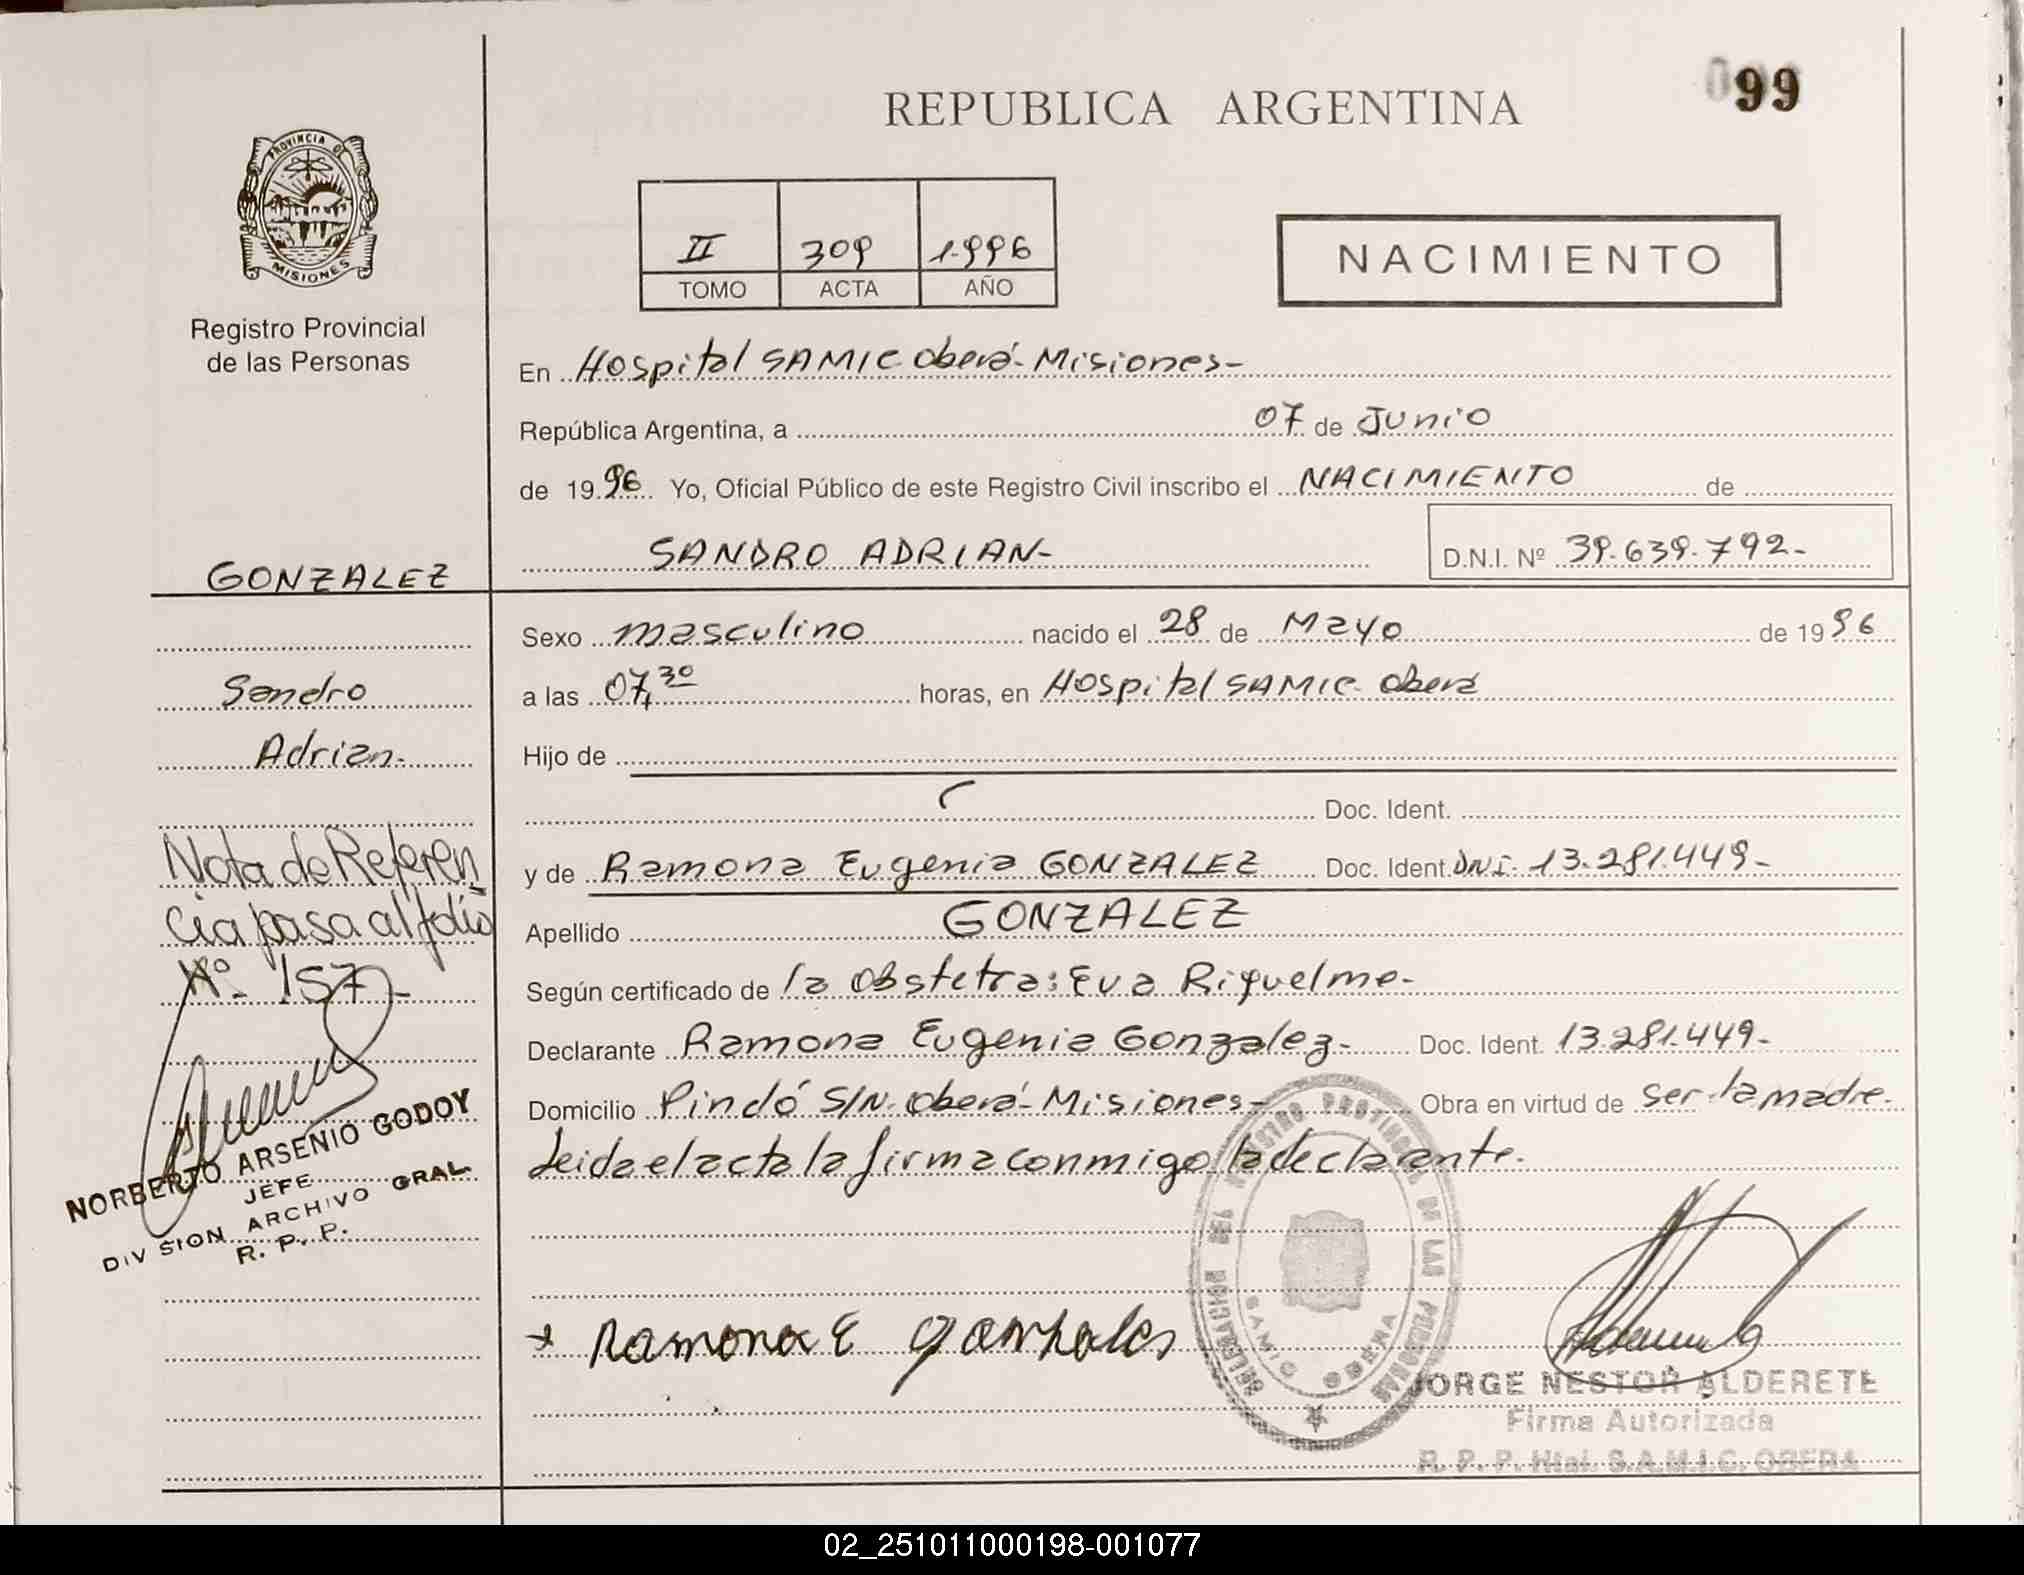 099
REPUBLICA ARGENTINA
PROVINCIA DE
MISIONES
Registro Provincial
de las Personas
II 309 1.996
TOMO ACTA AÑO
NACIMIENTO
En Hospital SAMIC Oberá-Misiones-
República Argentina, a 07 de Junio
de 1996 Yo, Oficial Público de este Registro Civil inscribo el NACIMIENTO de
SANDRO ADRIAN-
D.N.I. Nº 39.639.792-
GONZALEZ
Sandro
Adrian-
Nota de Referen
cia pasa al folio
Nº 157-
NORBERTO ARSENIO GODOY
JEFE
DIV SION ARCHIVO GRAL.
R. P. P.
Sexo masculino nacido el 28 de Mayo de 1996
a las 07,30 horas, en Hospital SAMIC-Oberá
Hijo de
Doc. Ident.
y de Ramona Eugenia GONZALEZ Doc. Ident. DNI. 13.281.449-
Apellido GONZALEZ
Según certificado de la Obstetra: Eva Riquelme-
Declarante Ramona Eugenia Gonzalez- Doc. Ident. 13.281.449-
Domicilio Pindó S/N-Oberá-Misiones- Obra en virtud de ser la madre-
Leida el acta la firma conmigo la declarante.
DELEGACION DEL REGISTRO PROVINCIAL DE LAS PERSONAS
SAMIC OBERA
Ramona E gonzales
JORGE NESTOR ALDERETE
Firma Autorizada
R. P. P. Htal. S.A.M.I.C. OBERA
02_251011000198-001077